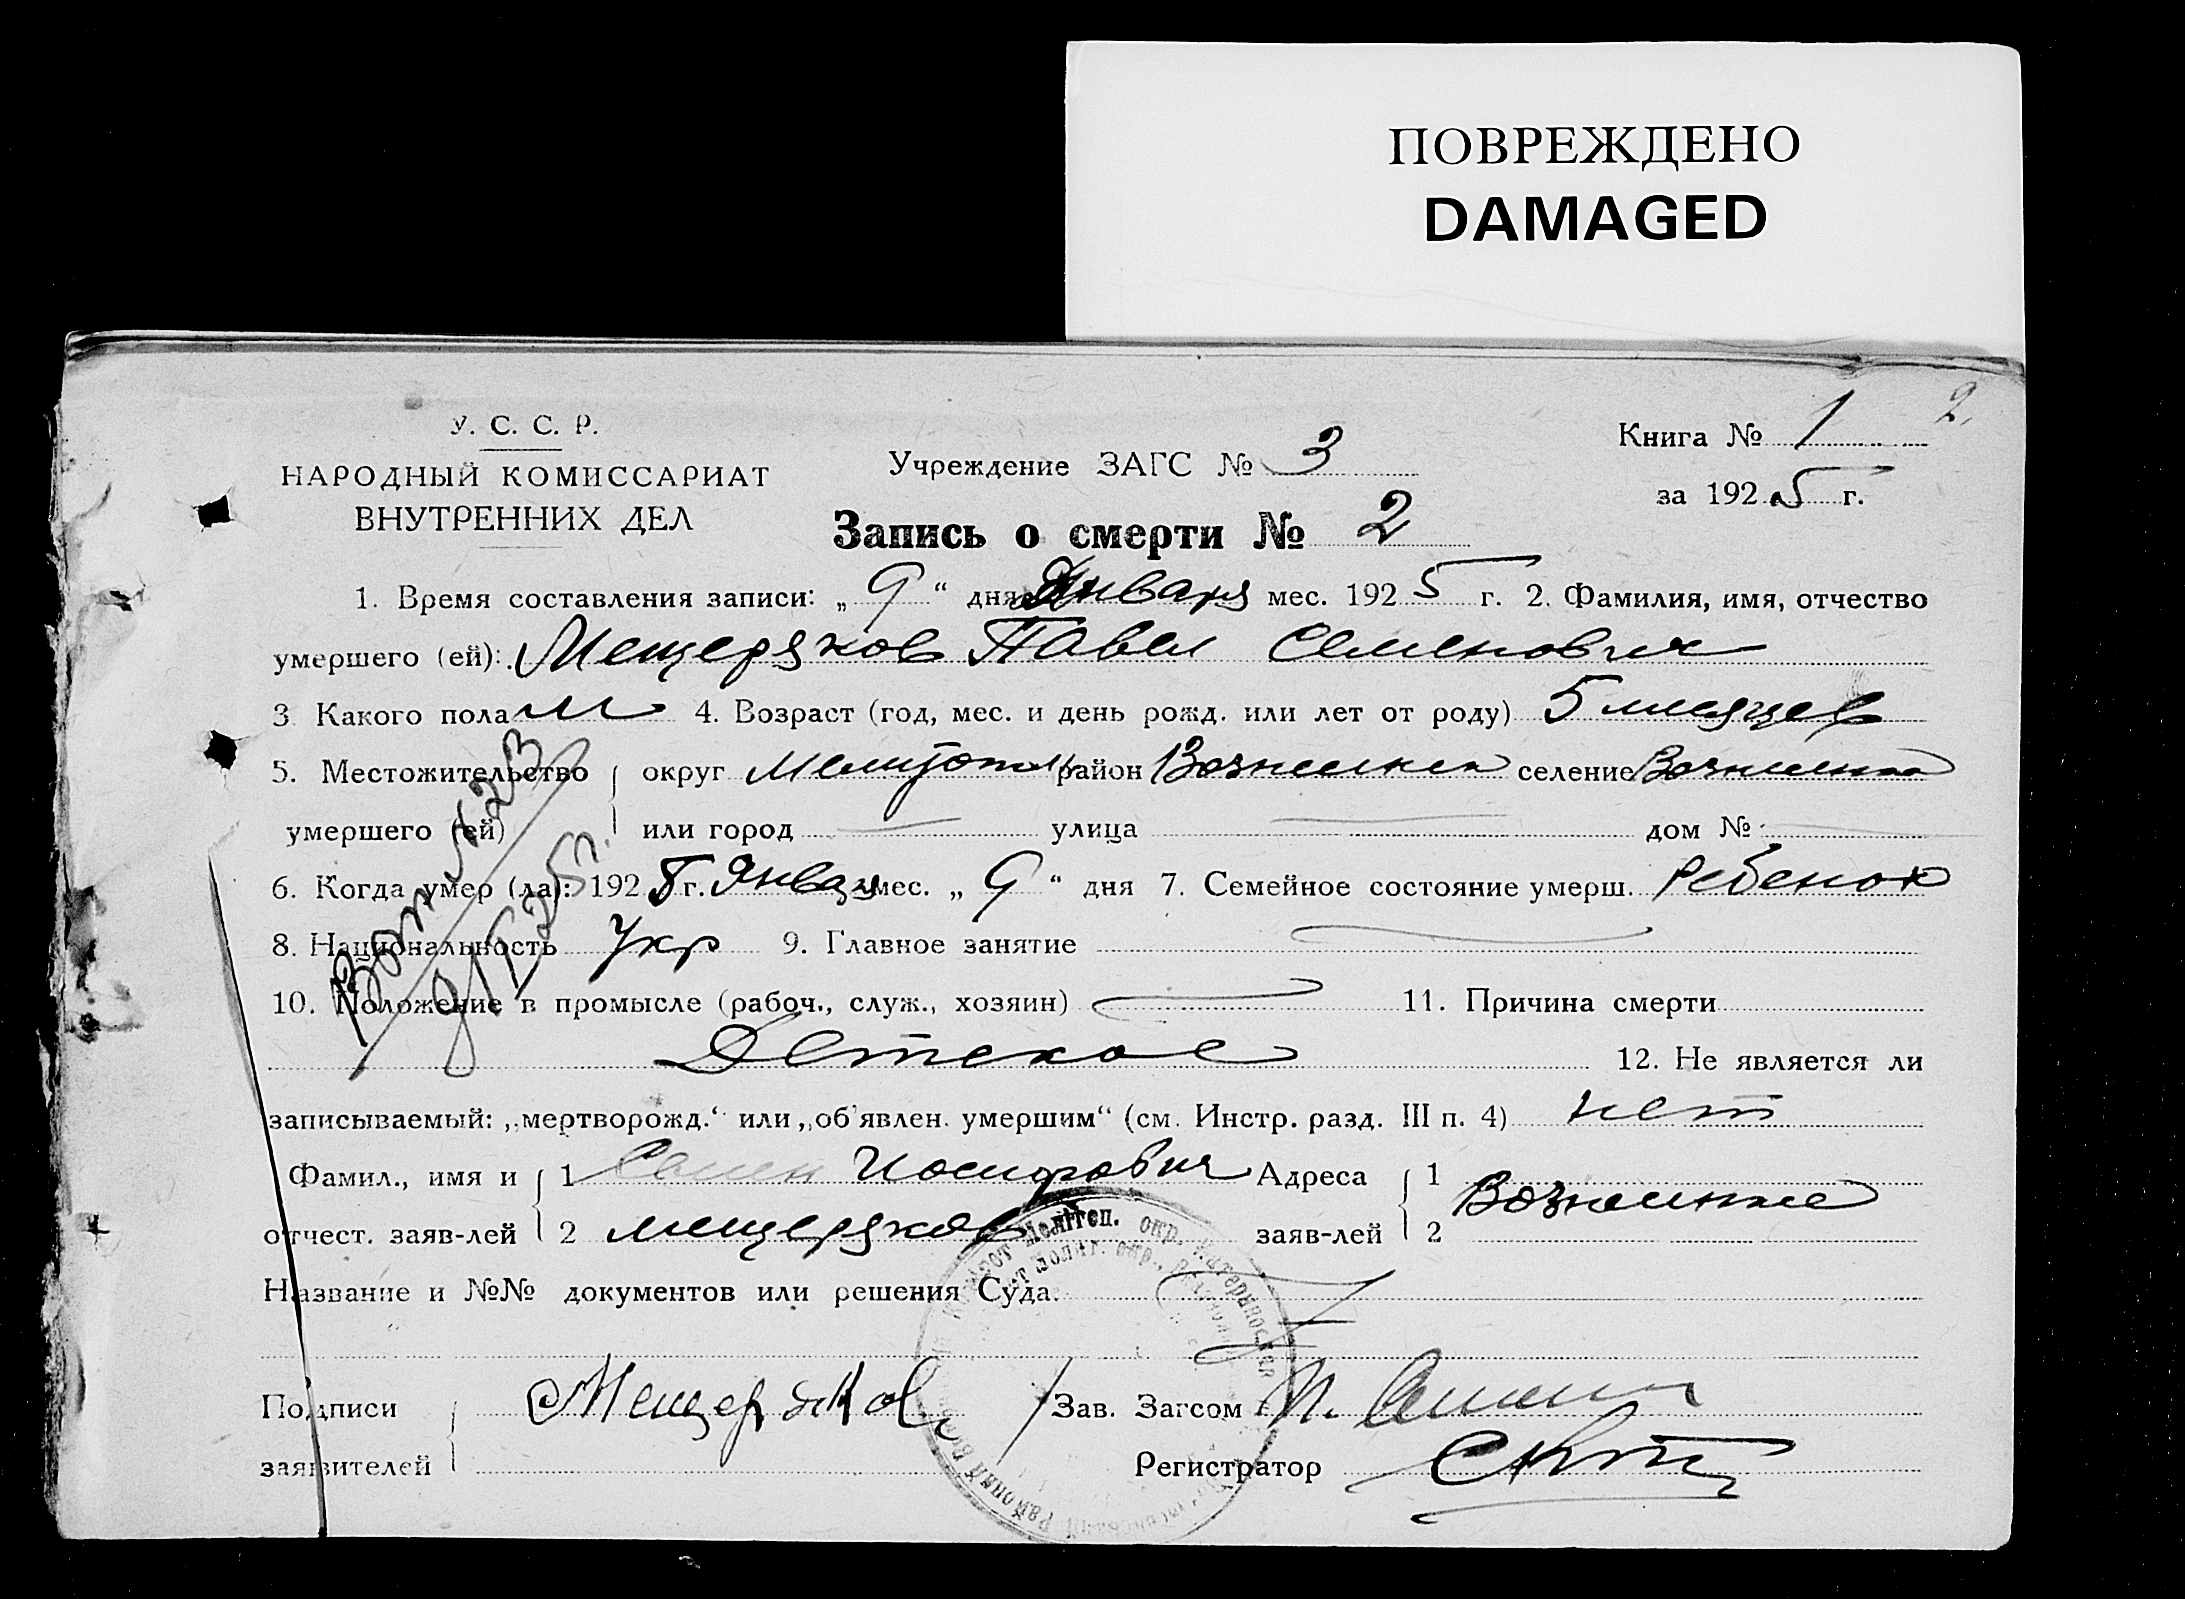 ПОВРЕЖДЕНО
DAMAGED
2.
У. С. С. Р.
НАРОДНЫЙ КОМИССАРИАТ
ВНУТРЕННИХ ДЕЛ
Учреждение ЗАГС № 3
Книга № 1
за 1925 г.
Запись о смерти № 2
1. Время составления записи: „9“ дня Января мес. 1925 г. 2. Фамилия, имя, отчество
умершего (ей): Мещеряков Павел Семенович
3. Какого пола м 4. Возраст (год, мес. и день рожд. или лет от роду) 5 месяцев
5. Местожительство умершего (ей) округ Мелитопол район Вознесенск селение Вознесенка
или город — улица — дом № —
6. Когда умер (ла): 1925 г. Января мес. „9“ дня 7. Семейное состояние умерш. ребенок
8. Национальность Укр 9. Главное занятие —
10. Положение в промысле (рабоч., служ., хозяин) — 11. Причина смерти
Детское 12. Не является ли
записываемый: „мертворожд.“ или „об'явлен. умершим“ (см. Инстр. разд. III п. 4) нет
Фамил., имя и отчест. заяв-лей 1 Семен Иосифович Адреса заяв-лей 1 Вознесенка
2 Мещеряков 2
Название и №№ документов или решения Суда.
Подписи заявителей Мещеряков Зав. Загсом П.
Регистратор